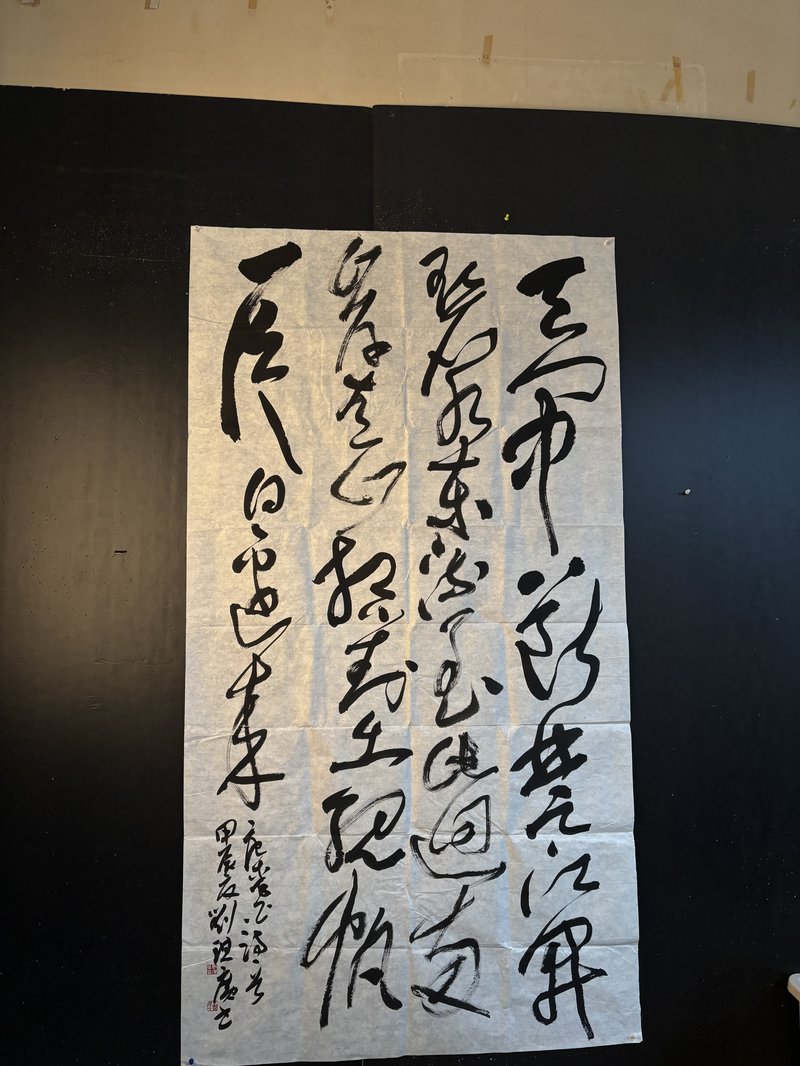 天門中斷楚江開
碧水東流至此迴兩
岸青山相對出孤帆
一片日邊來
唐李白詩一首
甲辰夏劉